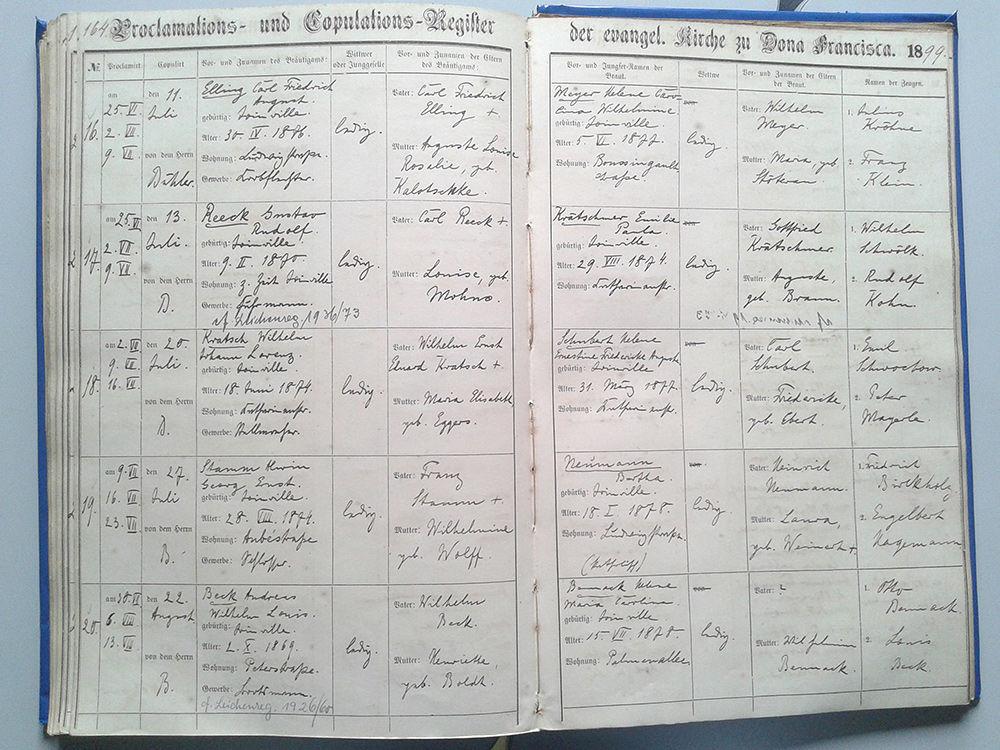 S. 164.
Proclamations- und Copulations-Register
der evangel. Kirche zu Dona Francisca. 1899.
№ Proclamirt Copulirt Vor- und Zunamen des Bräutigams: Wittwer oder Junggeselle Vor- und Zunamen der Eltern des Bräutigams:
Vor- und Jungfer-Namen der Braut. Wittwe Vor- und Zunamen der Eltern der Braut. Namen der Zeugen.
16.
am 25. VI.
2. VII.
9. VII.
den 11.
Juli
von dem Herrn
Bühler.
Elling Carl Friedrich
August.
gebürtig: Joinville.
Alter: 30. IV. 1876.
Wohnung: Ludwigstraße.
Gewerbe: Korbflechter.
ledig.
Vater: Carl Friedrich
Elling +
Mutter: Auguste Louise
Rosalie, geb.
Kalotschke.
Meyer Helene Caro-
line Wilhelmine
gebürtig: Joinville.
Alter: 5. VI. 1877.
Wohnung: Boussingault-
straße
ledig.
Vater: Wilhelm
Meyer.
Mutter: Maria, geb.
1. Julius
Kröhne
2. Franz
Klein.
17.
am 25. VI.
2. VII.
9. VII.
den 13.
Juli.
von dem Herrn
B.
Reeck Gustav
Rudolf.
gebürtig: Joinville.
Alter: 9. II. 1870.
Wohnung: z. Zeit Joinville
Gewerbe: Fuhrmann.
cf. Leichenreg. 1936/73
ledig.
Vater: Carl Reeck +
Mutter: Louise, geb.
Mohns.
Krätschmer Emilie
Paula.
gebürtig: Joinville.
Alter: 29. VIII. 1874.
Wohnung:
ledig.
Vater: Gottfried
Krätschmer.
Mutter: Auguste,
geb. Braun.
1. Wilhelm
Schwölk.
2. Rudolf
Kohn.
18.
am 2. VII.
9. VII.
16. VII.
den 20.
Juli.
von dem Herrn
B.
Kratsch Wilhelm
Johann Lorenz.
gebürtig: Joinville.
Alter: 18. Juni 1874.
Wohnung:
Gewerbe: Stellmacher.
ledig.
Vater: Wilhelm Ernst
Eduard Kratsch +
Mutter: Maria Elisabeth
geb. Eggers.
Schubert Helene
Ernestine Friedericke August
gebürtig: Joinville.
Alter: 31. März 1877.
Wohnung:
ledig.
Vater: Carl
Schubert.
Mutter: Friedericke,
geb. Ebert.
1. Emil
Schwochow.
2. Peter
Mayerle.
19.
am 9. VII
16. VII.
23. VII.
den 27.
Juli
von dem Herrn
B.
Stamm Erwin
Georg Ernst.
gebürtig: Joinville.
Alter: 28. VIII. 1874.
Wohnung: Aubéstraße
Gewerbe: Schlosser.
ledig.
Vater: Franz
Stamm +
Mutter: Wilhelmine
geb. Wolff.
Neumann
Bertha.
gebürtig: Joinville.
Alter: 18. I. 1878.
Wohnung: Ludwigstraße.
ledig
Vater: Heinrich
Neumann.
Mutter: Laura,
geb. Weinert +
1. Friedrich
Birckholz.
2. Engelbert
Hagemann
20.
am 30. VII
6. VIII
13. VIII
den 22.
August
von dem Herrn
B.
Beck Andreas
Wilhelm Louis.
gebürtig: Joinville.
Alter: 2. X. 1869.
Wohnung: Peterstraße.
Gewerbe:
cf. Leichenreg. 1926/60
ledig.
Vater: Wilhelm
Beck.
Mutter: Henriette,
geb. Boldt.
Bennack Helene
Maria Caroline.
gebürtig: Joinville
Alter: 15. VII. 1878.
Wohnung: Palmenallee
ledig.
Vater: ?
Mutter: Wilhelmine
Bennack.
1. Otto
Bennack.
2. Louis
Beck.